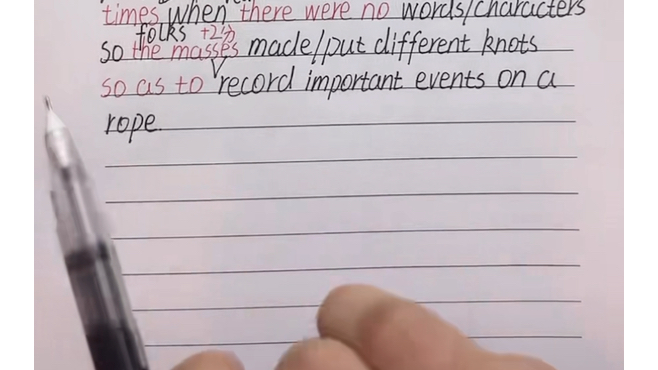 times when there were no words/characters
folks +2分
so the masses made/put different knots
so as to record important events on a
rope